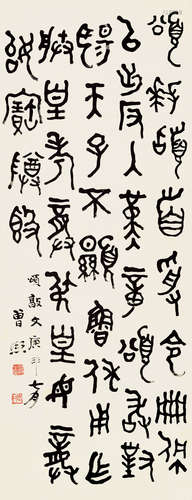 頌拜䭫首受令冊佩
以出反入堇章頌敢對
揚天子不顯魯休用乍
朕皇考龏叔皇母龏
始寶尊𣪘
頌敦文 庚 七月
曾熙